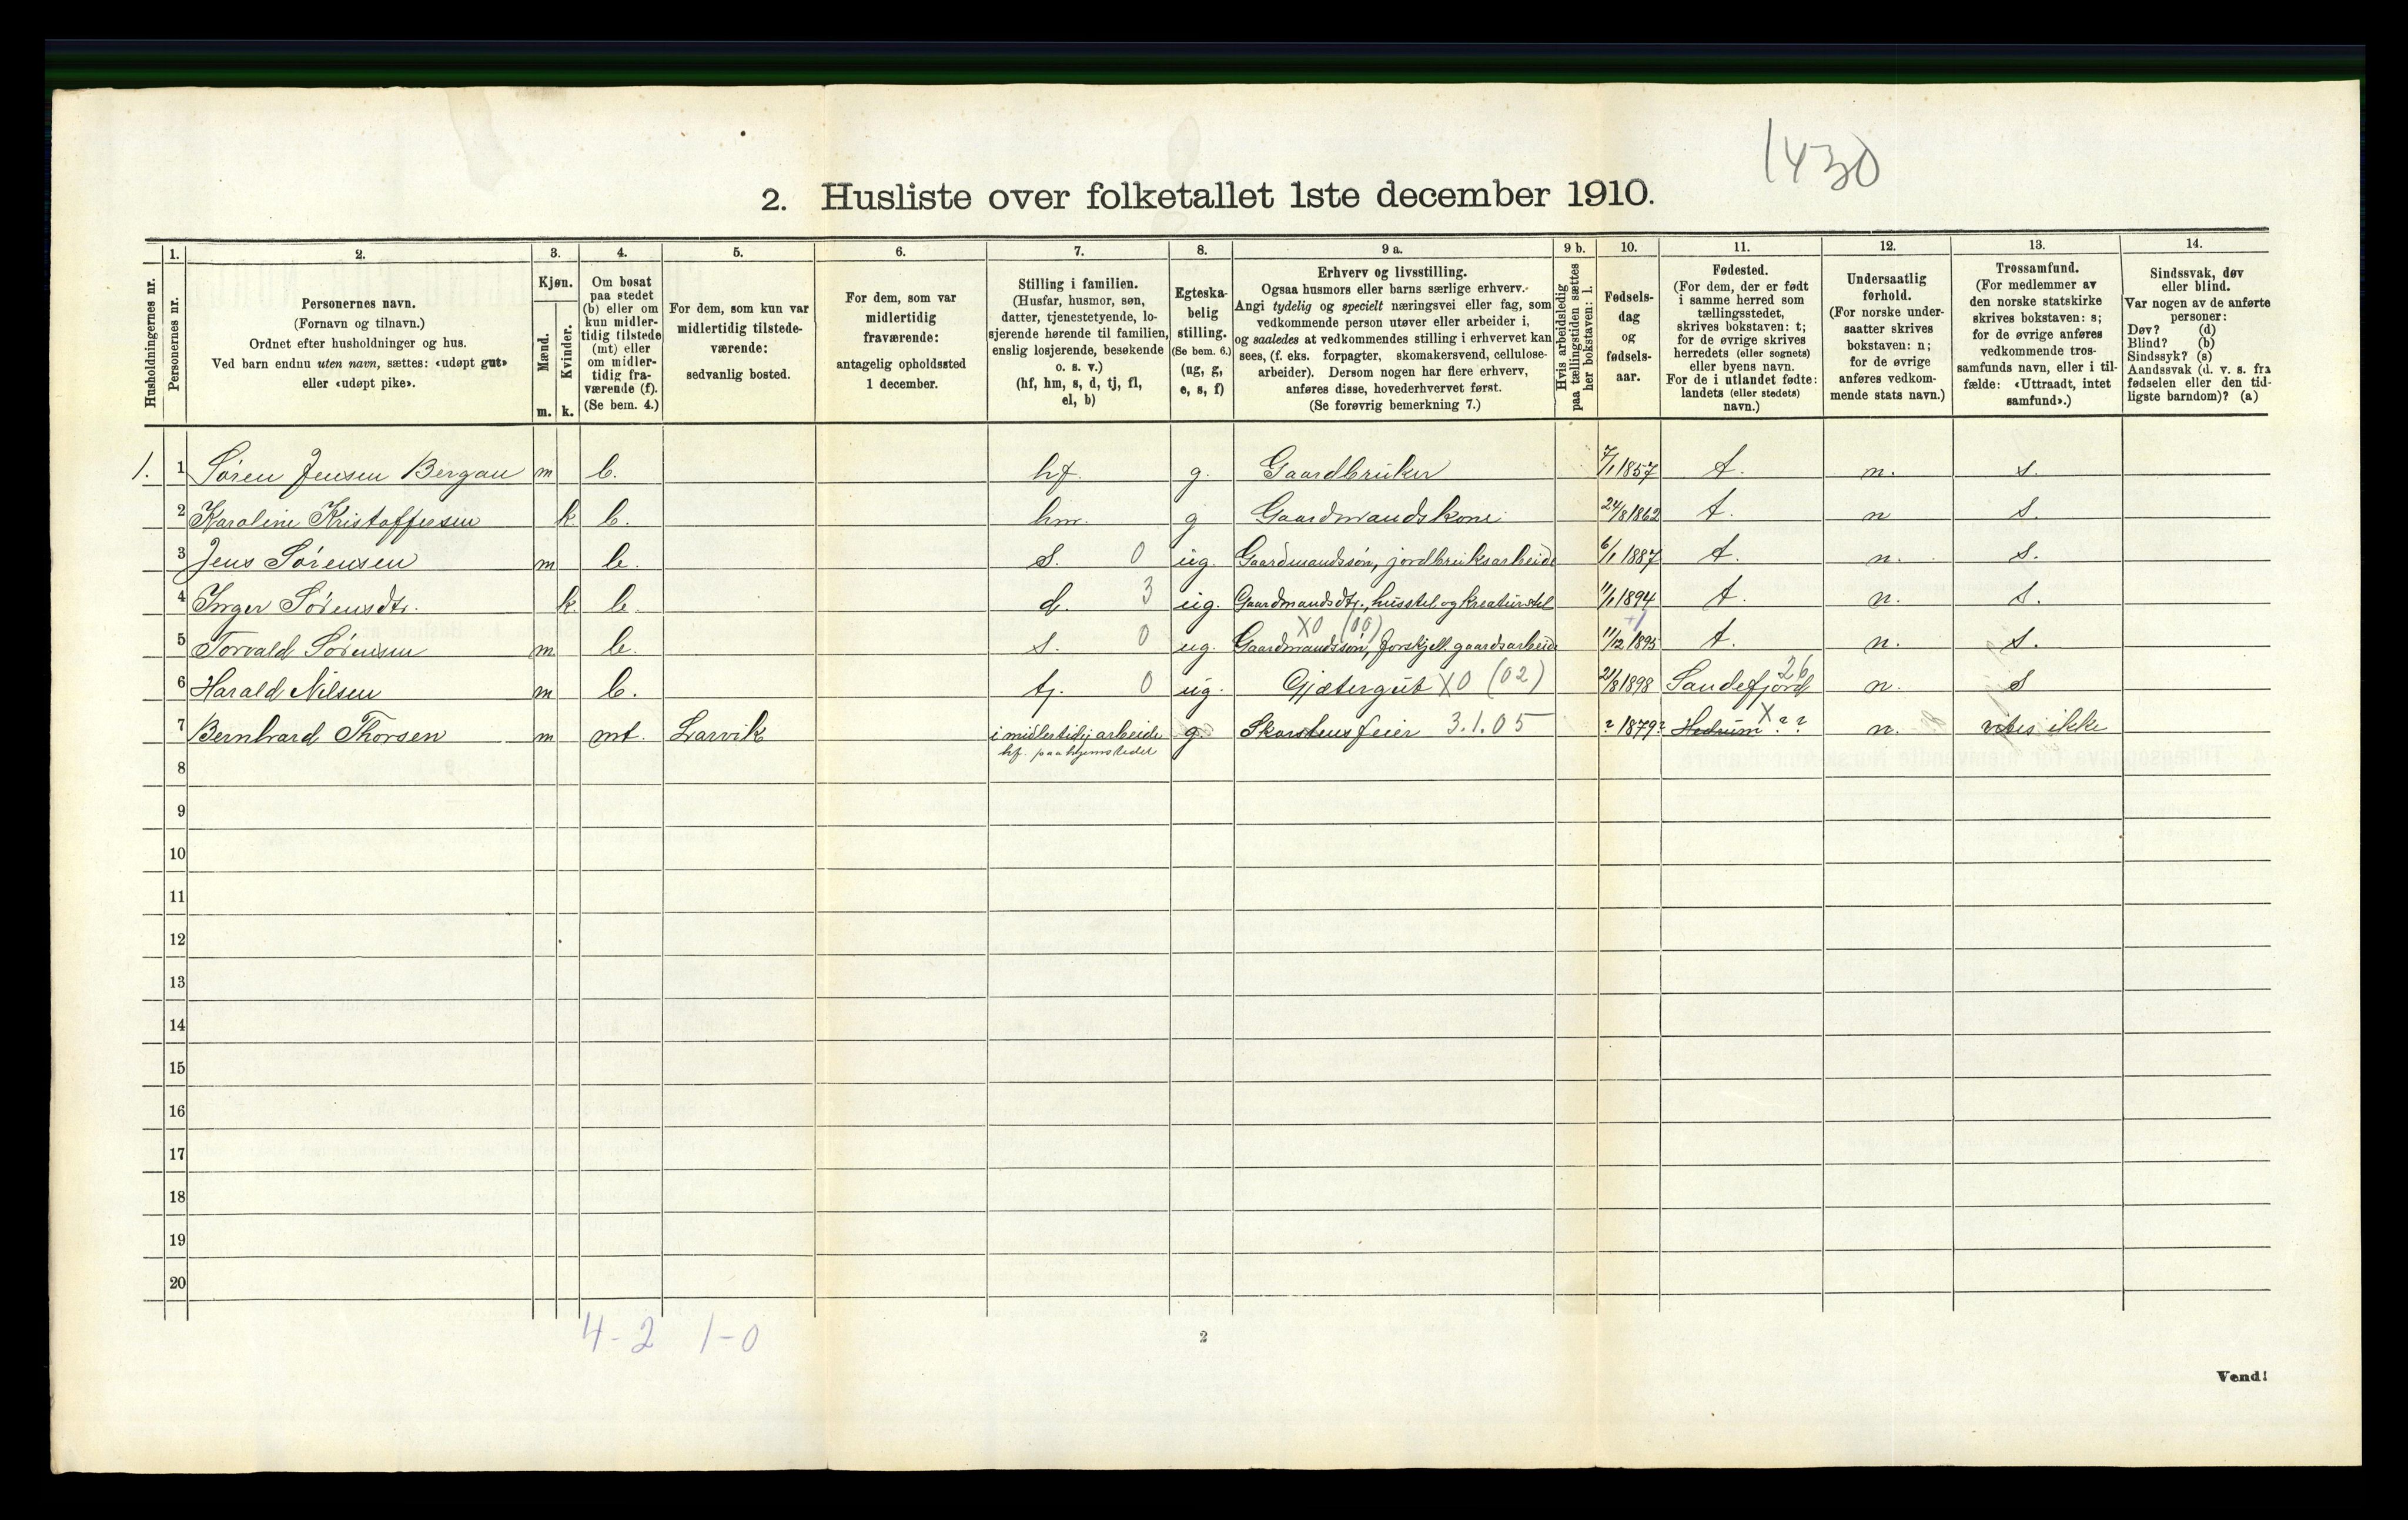 1430
2. Husliste over folketallet 1ste december 1910.
Husholdningernes nr.
1.
Personernes nr.
2.
Personernes navn.
(Fornavn og tilnavn.)
Ordnet efter husholdninger og hus.
Ved barn endnu uten navn, sættes: «udøpt gut»
eller «udøpt pike».
3.
Kjøn.
Mænd.
Kvinder.
m. k.
4.
Om bosat
paa stedet
(b) eller om
kun midler-
tidig tilstede
(mt) eller
om midler-
tidig fra-
værende (f).
(Se bem. 4.)
5.
For dem, som kun var
midlertidig tilstede-
værende:
sedvanlig bosted.
6.
For dem, som var
midlertidig
fraværende:
antagelig opholdssted
1 december.
7.
Stilling i familien.
(Husfar, husmor, søn,
datter, tjenestetyende, lo-
sjerende hørende til familien,
enslig losjerende, besøkende
o. s. v.)
(hf, hm, s, d, tj, fl,
el, b)
8.
Egteska-
belig
stilling.
(Se bem. 6.)
(ug, g,
e, s, f)
9 a.
Erhverv og livsstilling.
Ogsaa husmors eller barns særlige erhverv.
Angi tydelig og specielt næringsvei eller fag, som
vedkommende person utøver eller arbeider i,
og saaledes at vedkommendes stilling i erhvervet kan
sees, (f. eks. forpagter, skomakersvend, cellulose-
arbeider). Dersom nogen har flere erhverv,
anføres disse, hovederhvervet først.
(Se forøvrig bemerkning 7.)
9 b.
Hvis arbeidsledig
paa tællingstiden sættes
her bokstaven: l.
10.
Fødsels-
dag
og
fødsels-
aar.
11.
Fødested.
(For dem, der er født
i samme herred som
tællingsstedet,
skrives bokstaven: t;
for de øvrige skrives
herredets (eller sognets)
eller byens navn.
For de i utlandet fødte:
landets (eller stedets)
navn.)
12.
Undersaatlig
forhold.
(For norske under-
saatter skrives
bokstaven: n;
for de øvrige
anføres vedkom-
mende stats navn.)
13.
Trossamfund.
(For medlemmer av
den norske statskirke
skrives bokstaven: s;
for de øvrige anføres
vedkommende tros-
samfunds navn, eller i til-
fælde: «Uttraadt, intet
samfund».)
14.
Sindssvak, døv
eller blind.
Var nogen av de anførte
personer:
Døv? (d)
Blind? (b)
Sindssyk? (s)
Aandssvak (d. v. s. fra
fødselen eller den tid-
ligste barndom)? (a)
1. 1 Søren Jensen Bergan m b. hf. g. Gaardbruker 7/1 1857 t. n. s.
2 Karoline Kristoffersen k. b. hm. g Gaardmandskone 24/8 1862 t. n s.
3 Jens Sørensen m b. s. 0 ug. Gaardmandssøn, jordbruksarbeide 6/1 1887 t. n. s.
4 Inger Sørensdtr. k. b. d. 3 ug. Gaardmandsdtr., husstel og kreaturstel 11/1 1894 t. n. s.
X0 (00) +1
5 Torvald Sørensen m b. s. 0 ug. Gaardmandssøn, forskjell. gaardsarbeide 11/12 1895 t. n. s.
6 Harald Nilsen m b. tj. 0 ug. Gjætergut X0 (02) 21/8 1898 Sandefjord 26 n. s
7 Bernhard Thorsen m mt. Larvik i midlertidig arbeide g. Skorstensfeier 3.1.05 ? 1879? Hedrum X ? ? n. vites ikke
hf. paa hjemstedet
8
9
10
11
12
13
14
15
16
17
18
19
20
4-2 1-0
2
Vend!